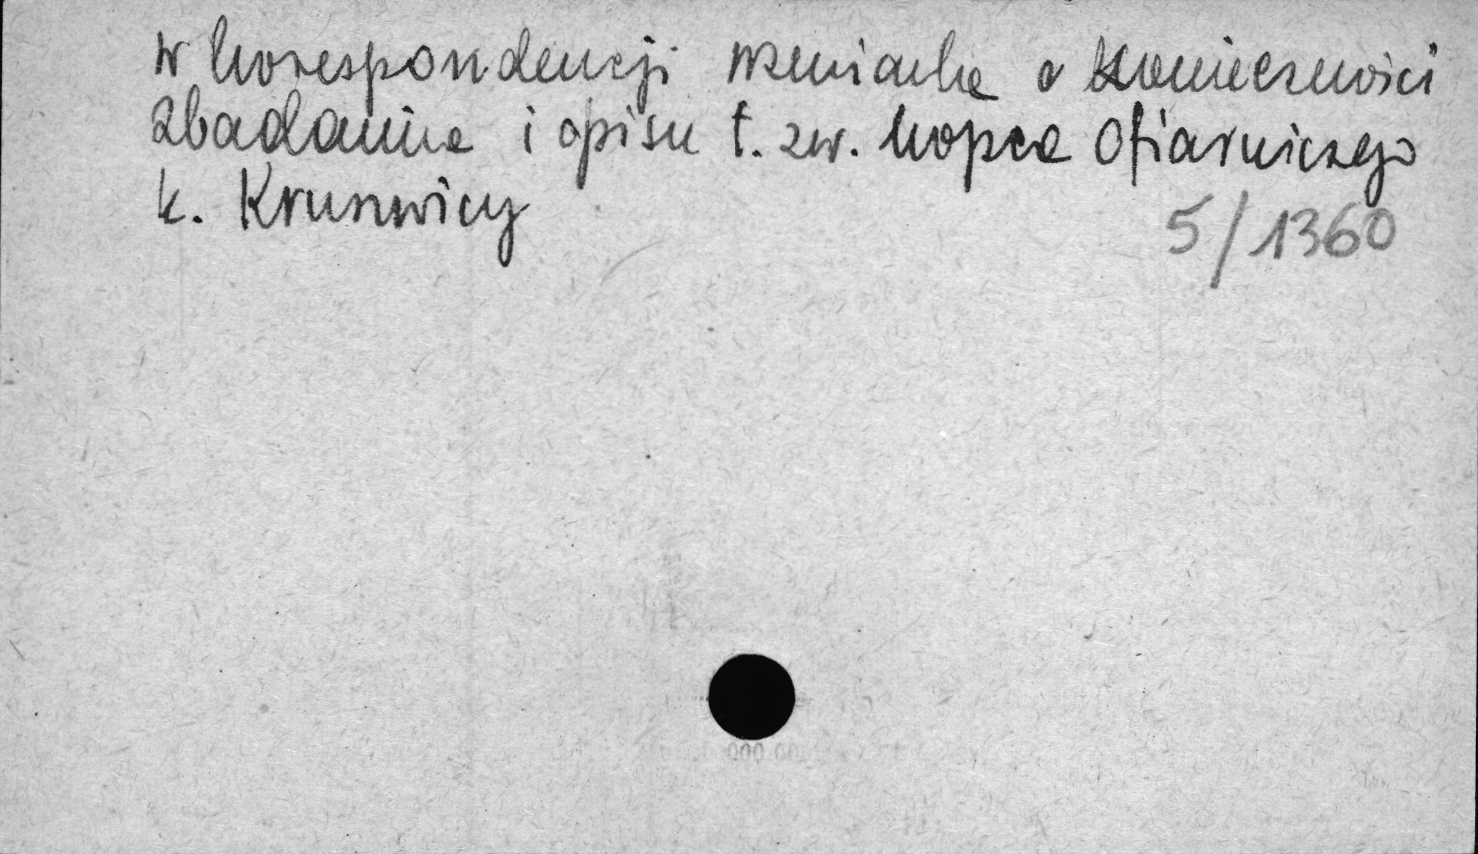 w korespondencji wzmianka o konieczności
zbadania i opisu t. zw. kopca Ofiarniczego
k. Kruszwicy
5/1360